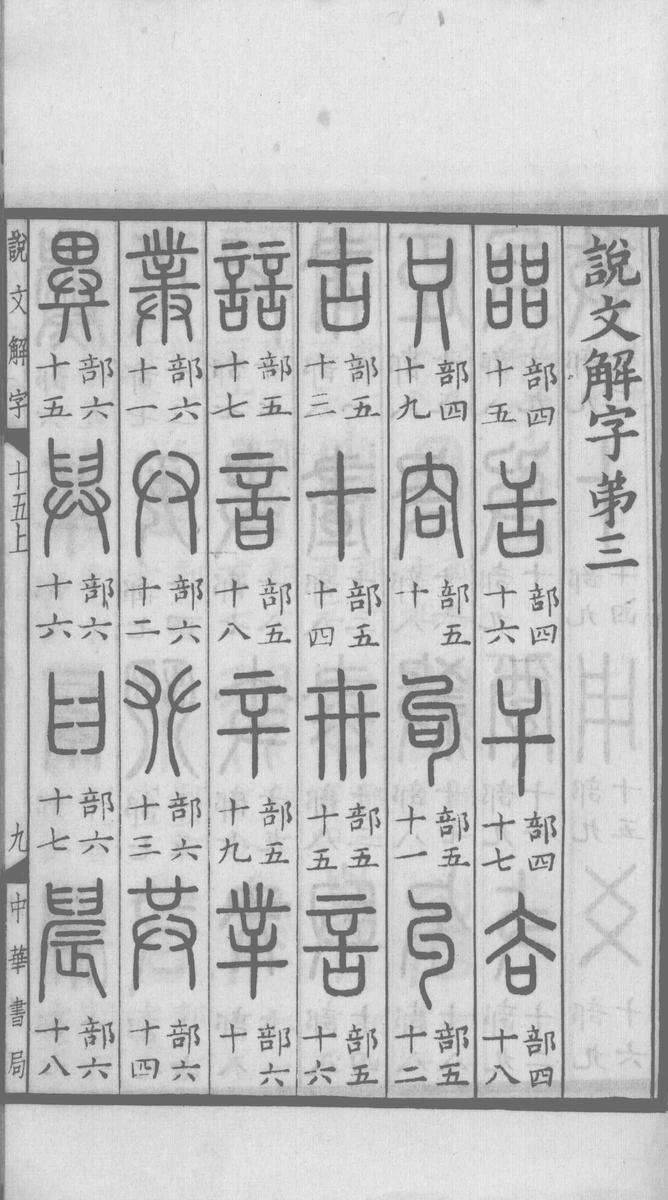 說文解字弟三
㗊部四十五 舌部四十六 干部四十七 𧮫部四十八
只部四十九 㕯部五十 句部五十一 丩部五十二
古部五十三 十部五十四 卅部五十五 言部五十六
誩部五十七 音部五十八 䇂部五十九 丵部六十
菐部六十一 𠬞部六十二 𠬜部六十三 共部六十四
異部六十五 舁部六十六 𦥑部六十七 䢅部六十八
說文解字 十五上 九 中華書局